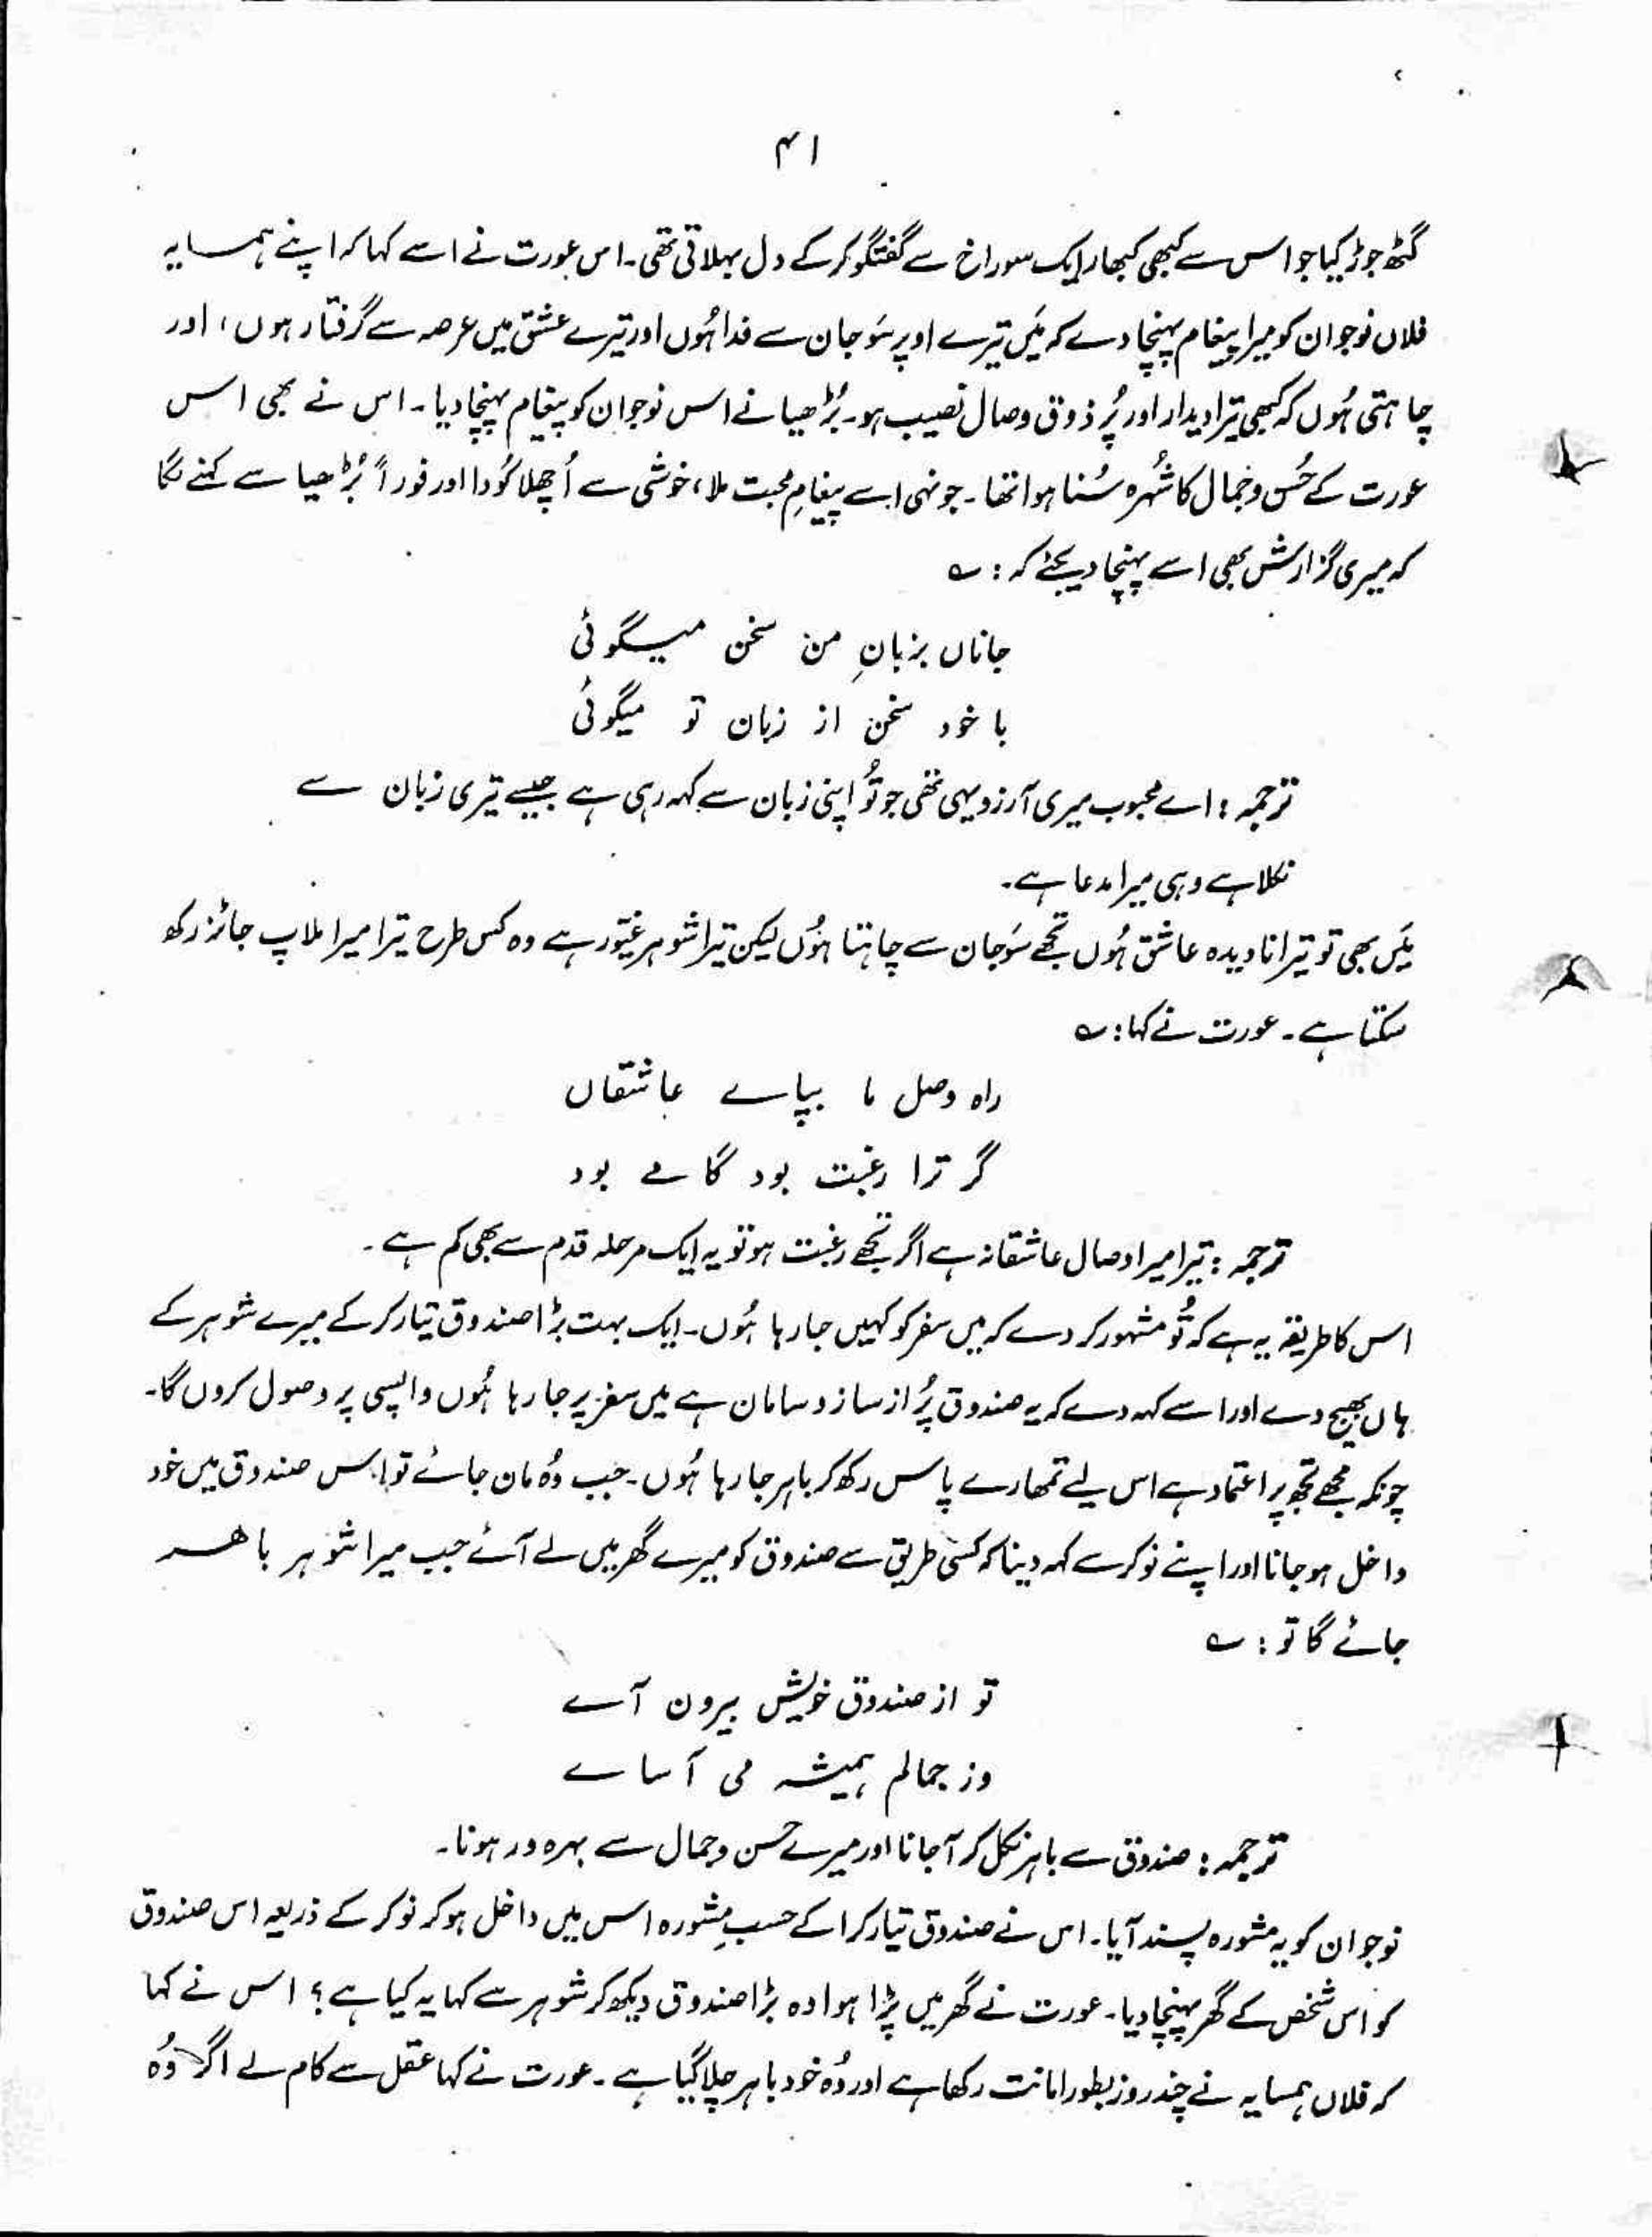 ۴۱
گٹھ جوڑ کیا جو اس سے کبھی کبھار ایک سوراخ سے گفتگو کر کے دل بہلاتی تھی۔ اس عورت نے اسے کہا کہ اپنے ہمسایہ
فلاں نوجوان کو میرا پیغام پہنچا دے کہ مَیں تیرے اوپر سَو جان سے فدا ہُوں اور تیرے عشق میں عرصہ سے گرفتار ہوں، اور
چاہتی ہُوں کہ کبھی تیرا دیدار اور پُر ذوق وصال نصیب ہو۔ بُڑھیا نے اس نوجوان کو پیغام پہنچا دیا۔ اس نے بھی اس
عورت کے حُسن و جمال کا شُہرہ سُنا ہوا تھا۔ جونہی اسے پیغامِ محبت ملا، خوشی سے اُچھلا کُودا اور فوراً بُڑھیا سے کہنے لگا
کہ میری گزارش بھی اسے پہنچا دیجئے کہ : ؎
جاناں بزبانِ من سخن میگوئی
با خود سخن از زبان تو میگوئی
ترجمہ : اے محبوب میری آرزو یہی تھی جو تُو اپنی زبان سے کہہ رہی ہے جیسے تیری زبان سے
نکلا ہے وہی میرا مدعا ہے۔
مَیں بھی تو تیرا نادیدہ عاشق ہُوں تجھے سَو جان سے چاہتا ہُوں لیکن تیرا شوہر غیّور ہے وہ کس طرح تیرا میرا ملاپ جائز رکھ
سکتا ہے۔ عورت نے کہا : ؎
راہ وصل ما بپاے عاشقاں
گر ترا رغبت بود گامے بود
ترجمہ : تیرا میرا وصال عاشقانہ ہے اگر تجھے رغبت ہو تو یہ ایک مرحلہ قدم سے بھی کم ہے۔
اس کا طریقہ یہ ہے کہ تُو مشہور کر دے کہ میں سفر کو کہیں جا رہا ہُوں۔ ایک بہت بڑا صندوق تیار کر کے میرے شوہر کے
ہاں بھیج دے اور اسے کہہ دے کہ یہ صندوق پُر از ساز و سامان ہے میں سفر پر جا رہا ہُوں واپسی پر وصول کروں گا۔
چونکہ مجھے تجھ پر اعتماد ہے اس لیے تمھارے پاس رکھ کر باہر جا رہا ہُوں۔ جب وُہ مان جائے تو اس صندوق میں خود
داخل ہو جانا اور اپنے نوکر سے کہہ دینا کہ کسی طریق سے صندوق کو میرے گھر میں لے آئے جب میرا شوہر باھر
جائے گا تو : ؎
تو از صندوق خویش بیرون آے
وز جمالم ہمیشہ می آساے
ترجمہ : صندوق سے باہر نکل کر آجانا اور میرے حسن و جمال سے بہرہ ور ہونا۔
نوجوان کو یہ مشورہ پسند آیا۔ اس نے صندوق تیار کرا کے حسبِ مشورہ اس میں داخل ہو کر نوکر کے ذریعہ اس صندوق
کو اس شخص کے گھر پہنچا دیا۔ عورت نے گھر میں پڑا ہوا وہ بڑا صندوق دیکھ کر شوہر سے کہا یہ کیا ہے؟ اس نے کہا
کہ فلاں ہمسایہ نے چند روز بطور امانت رکھا ہے اور وُہ خود باہر چلا گیا ہے۔ عورت نے کہا عقل سے کام لے اگر وُہ